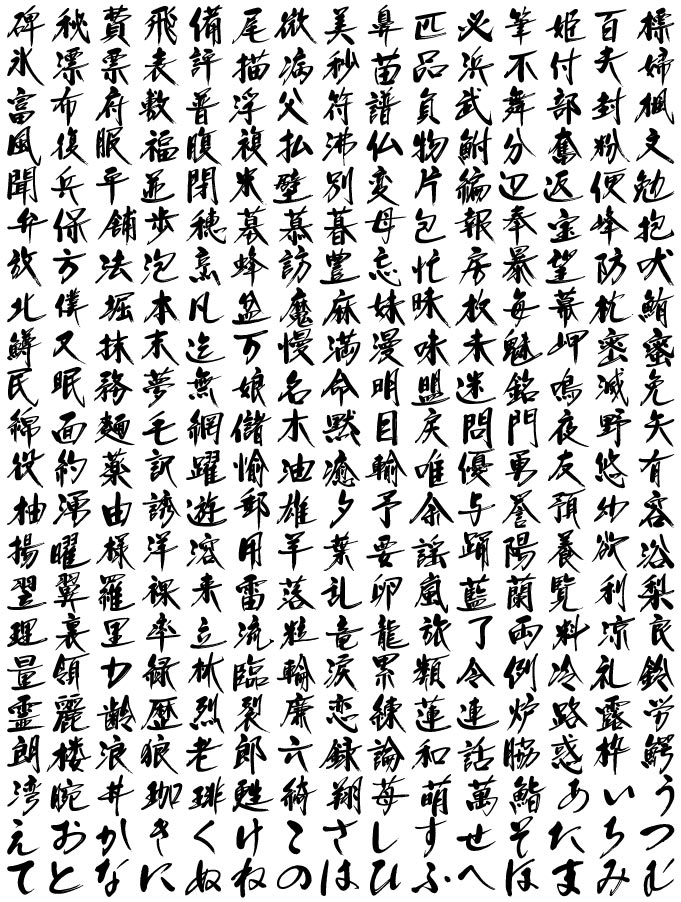 碑秘費飛備尾微美鼻匹必筆姫百標
氷漂票表評描病秒苗品浜不付夫婦
富布府敷普浮父符譜負武舞部封楓
風復服福腹複払沸仏物鮒分奮粉文
聞兵平並閉米壁別変片編辺返便勉
弁保舗歩穂募慕暮母包報奉宝峰抱
放方法泡烹蜂訪豊忘忙房暴望防吠
北僕堀本凡盆魔麻妹昧枚毎幕枕鮪
鱒又抹末迄万慢満漫味未魅岬密蜜
民眠務夢無娘名命明盟迷銘鳴滅免
綿面麺毛網儲木黙目戻問門夜野矢
役約薬訳躍愉油癒輸唯優勇友悠有
柚湧由誘遊郵雄夕予余与誉預幼容
揚曜様洋溶用羊葉要謡踊陽養欲浴
翌翼羅裸来雷落乱卵嵐藍蘭覧利梨
理裏里率立流粒竜龍旅了両料涼良
量領力緑林臨輪涙累類令例冷礼鈴
霊麗齢歴烈裂廉恋練蓮連炉路露労
朗楼浪狼老郎六録論和話脇惑枠鰐
湾腕丼珈琲甦綺翔苺萌萬鮨あいう
えおかきくけこさしすせそたちつ
てとなにぬねのはひふへほまみむ